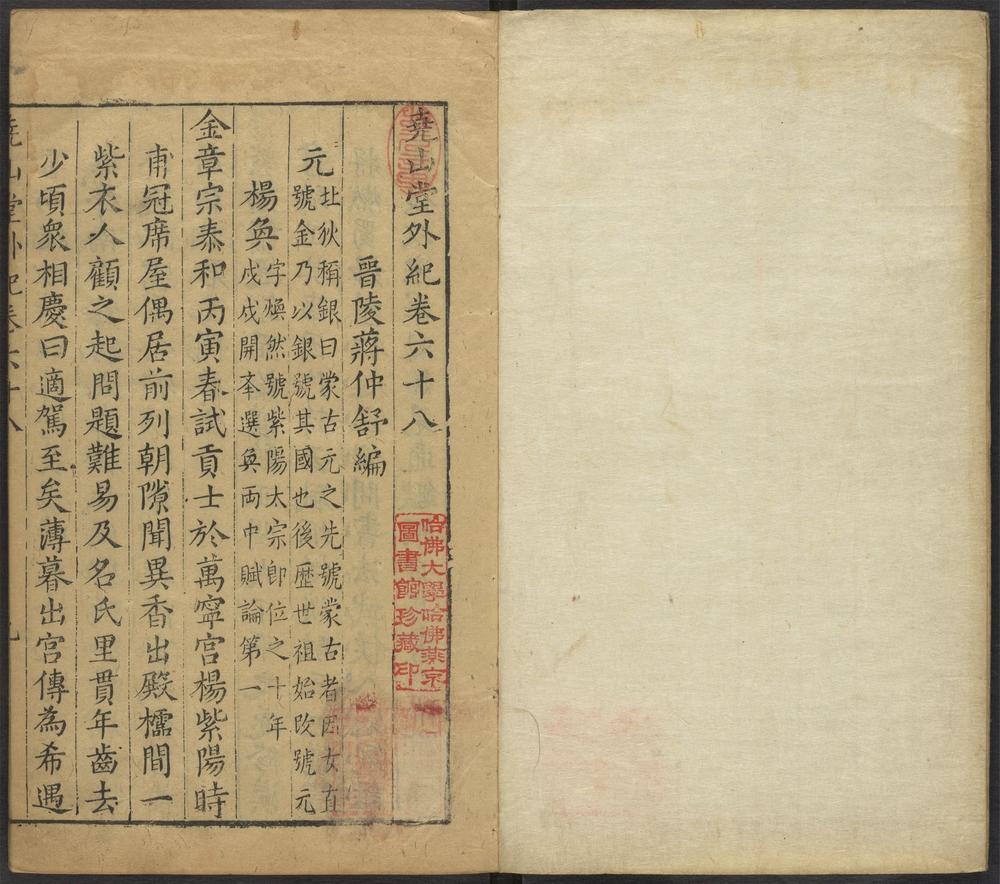 堯山堂外紀卷六十八
晉陵蔣仲舒編
元
北狄稱銀曰蒙古元之先號蒙古者因女直
號金乃以銀號其國也後歷世祖始改號元
楊奐
字煥然號紫陽太宗卽位之十年
戊戌開夲選奐両中賦論第一
金章宗泰和丙寅春試貢士於萬寧宮楊紫陽時
甫冠席屋偶居前列朝隙聞異香出殿櫺間一
紫衣人顧之起問題難易及名氏里貫年齒去
少頃衆相慶曰適駕至矣薄暮出宮傳為希遇
堯山堂外紀卷六十八
哈佛大學哈佛燕京
圖書館珍藏印